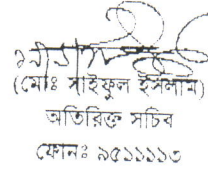 (মোঃ সাইফুল ইসলাম)
অতিরিক্ত সচিব
ফোনঃ ৯৫১১১১৩